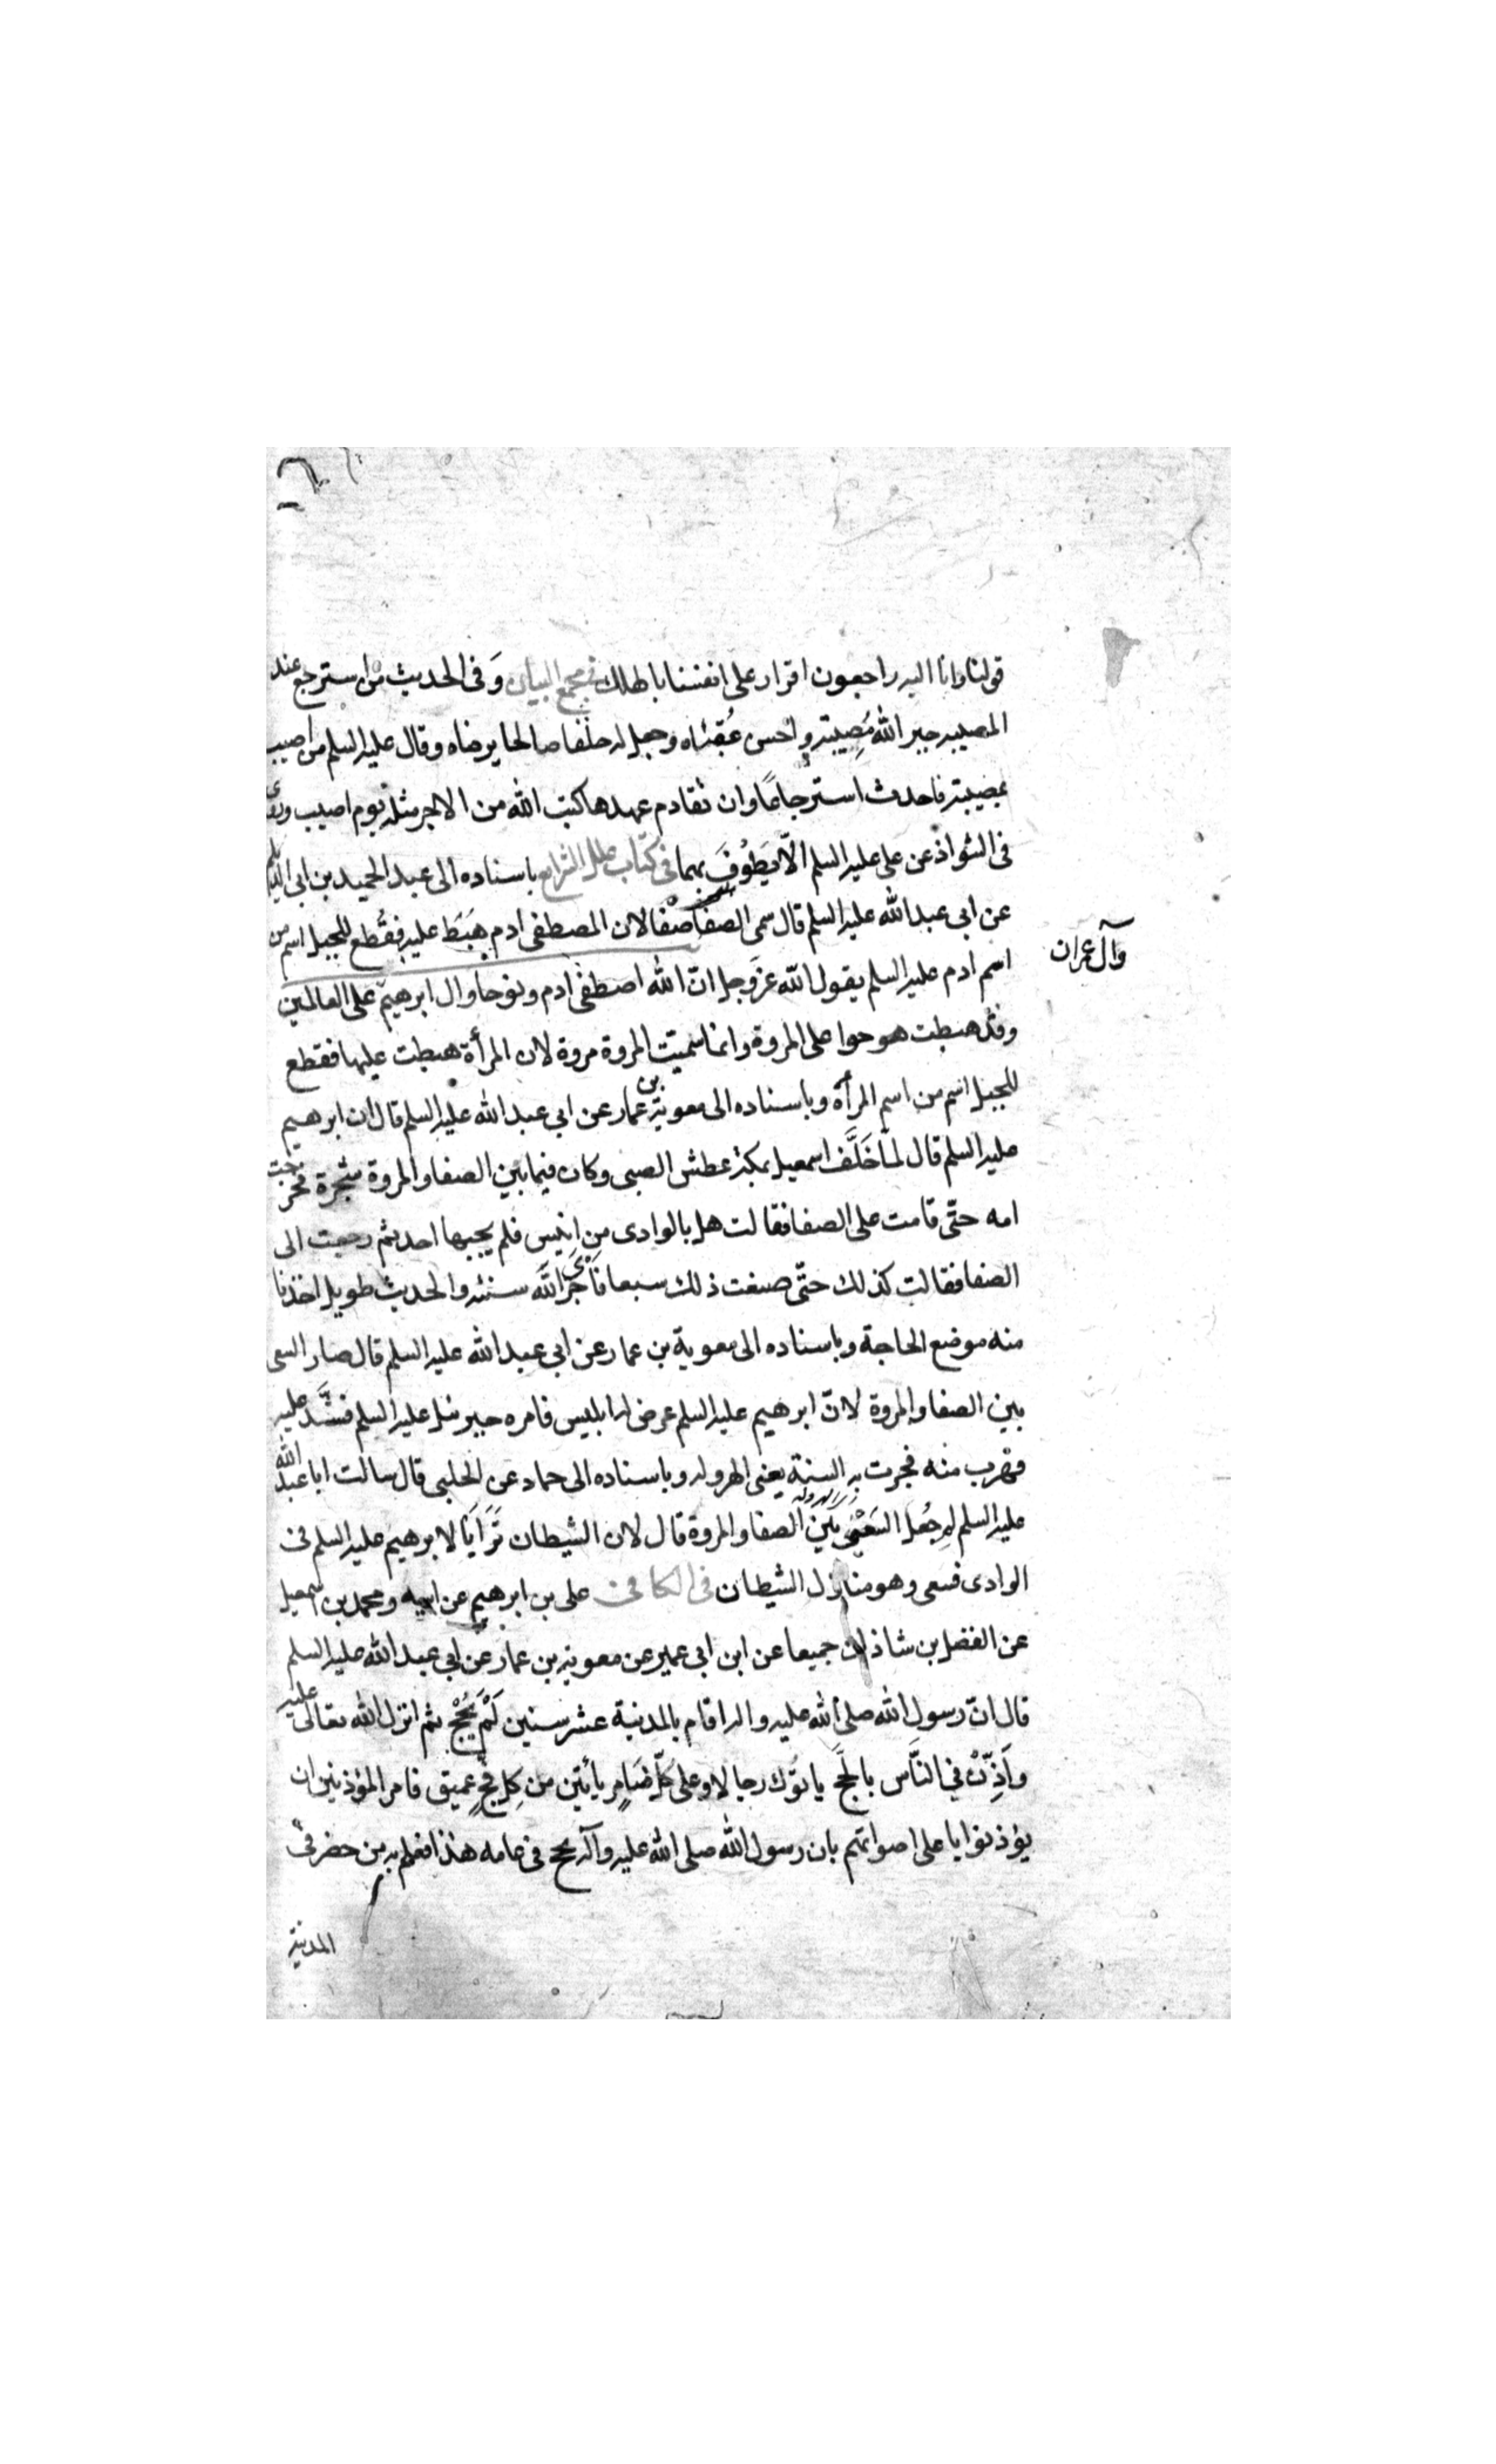 قولنا وانا اليه راجعون اقرار على انفسنا بالهلك في مجمع البيان وَفى الحديث من استرجع عند
المصيبه جبر الله مُصِيبته واحسن عُقبَاه وجعل له خلفا صالحا يرضاه وقال عليه السلم من اصيب
بمصيبة فاحدث استرجاعًا وان تقادم عهدها كتب الله من الاجر مثله يوم اصيب وروى
فى الشواذ عن على عليه السلم الّا يَطوُفَ بهما فى كتاب علل الشرايع باسناده الى عبد الحميد بن ابى الديلم
عن ابى عبد الله عليه السلم قال سمى الصفا صَفا لان المصطفى ادم هَبَطَ عليه فقُطع للجبل اسم من
اسم ادم عليه السلم يقول الله عزَوجل انّ الله اصطفى ادم ونوحا وال ابرهيم على العالمين
وآل عمران
وقد هبطت هو حوا على المروة وانما سميّت المروة مروة لان المرأة هبطت عليها فقطع
للجبل اسم من اسم المرأة وباسناده الى معوية بن عمار عن ابي عبد الله عليه السلم قال ان ابرهيم
عليه السلم قال لمّا خَلَّف اسمعيل بمكة عطش الصبى وكان فيما بين الصفا والمروة شجرة فخرجت
امه حتّى قامت على الصفا فقالت هل بالوادى من انيس فلم يجبها احد ثم رجعت الى
الصفا فقالت كذلك حتّى صنعت ذلك سبعا فَاَجرَى الله سنته والحديث طويل اخذنا
منه موضع الحاجة وباسناده الى معوية بن عمار عن ابي عبد الله عليه السلم قال صار السعى
بين الصفا والمروة لانّ ابرهيم عليه السلم عرض له ابليس فامره جبرئيل عليه السلم فشَّد عليه
فهَرب منه فجرت به السنة يعنى الهروله وباسناده الى حماد عن الحلبى قال سالت ابا عبد الله
عليه السلم لِمَ جُعل السَعْىُ بَيَن الصفا والمروة قال لان الشيطان تَرَايَا لابرهيم عليه السلم فى
الوادى فسعى وهو منازل الشيطان فى الكافى على بن ابرهيم عن ابيه ومحمد بن اسمعيل
عن الفضل بن شاذان جميعا عن ابن ابى عمير عن معوية بن عمار عن ابي عبد الله عليه السلم
قال انّ رسول الله صلى الله عليه واله اقام بالمدينة عشر سنين لَمْ يحُجْ ثم انزل الله تعالى عليه
واَذِّنْ في النَّاس بالَحجّ ياتوَك رجالا وعلى كلّ ضَامِر يأتين من كِل فَجٍّ عميق فامر المؤذنين ان
يؤذنوا باعلى اصواتهم بان رسول الله صلى الله عليه وآله يحج فى عامه هذا فعلم به من حضر فى
المدينة